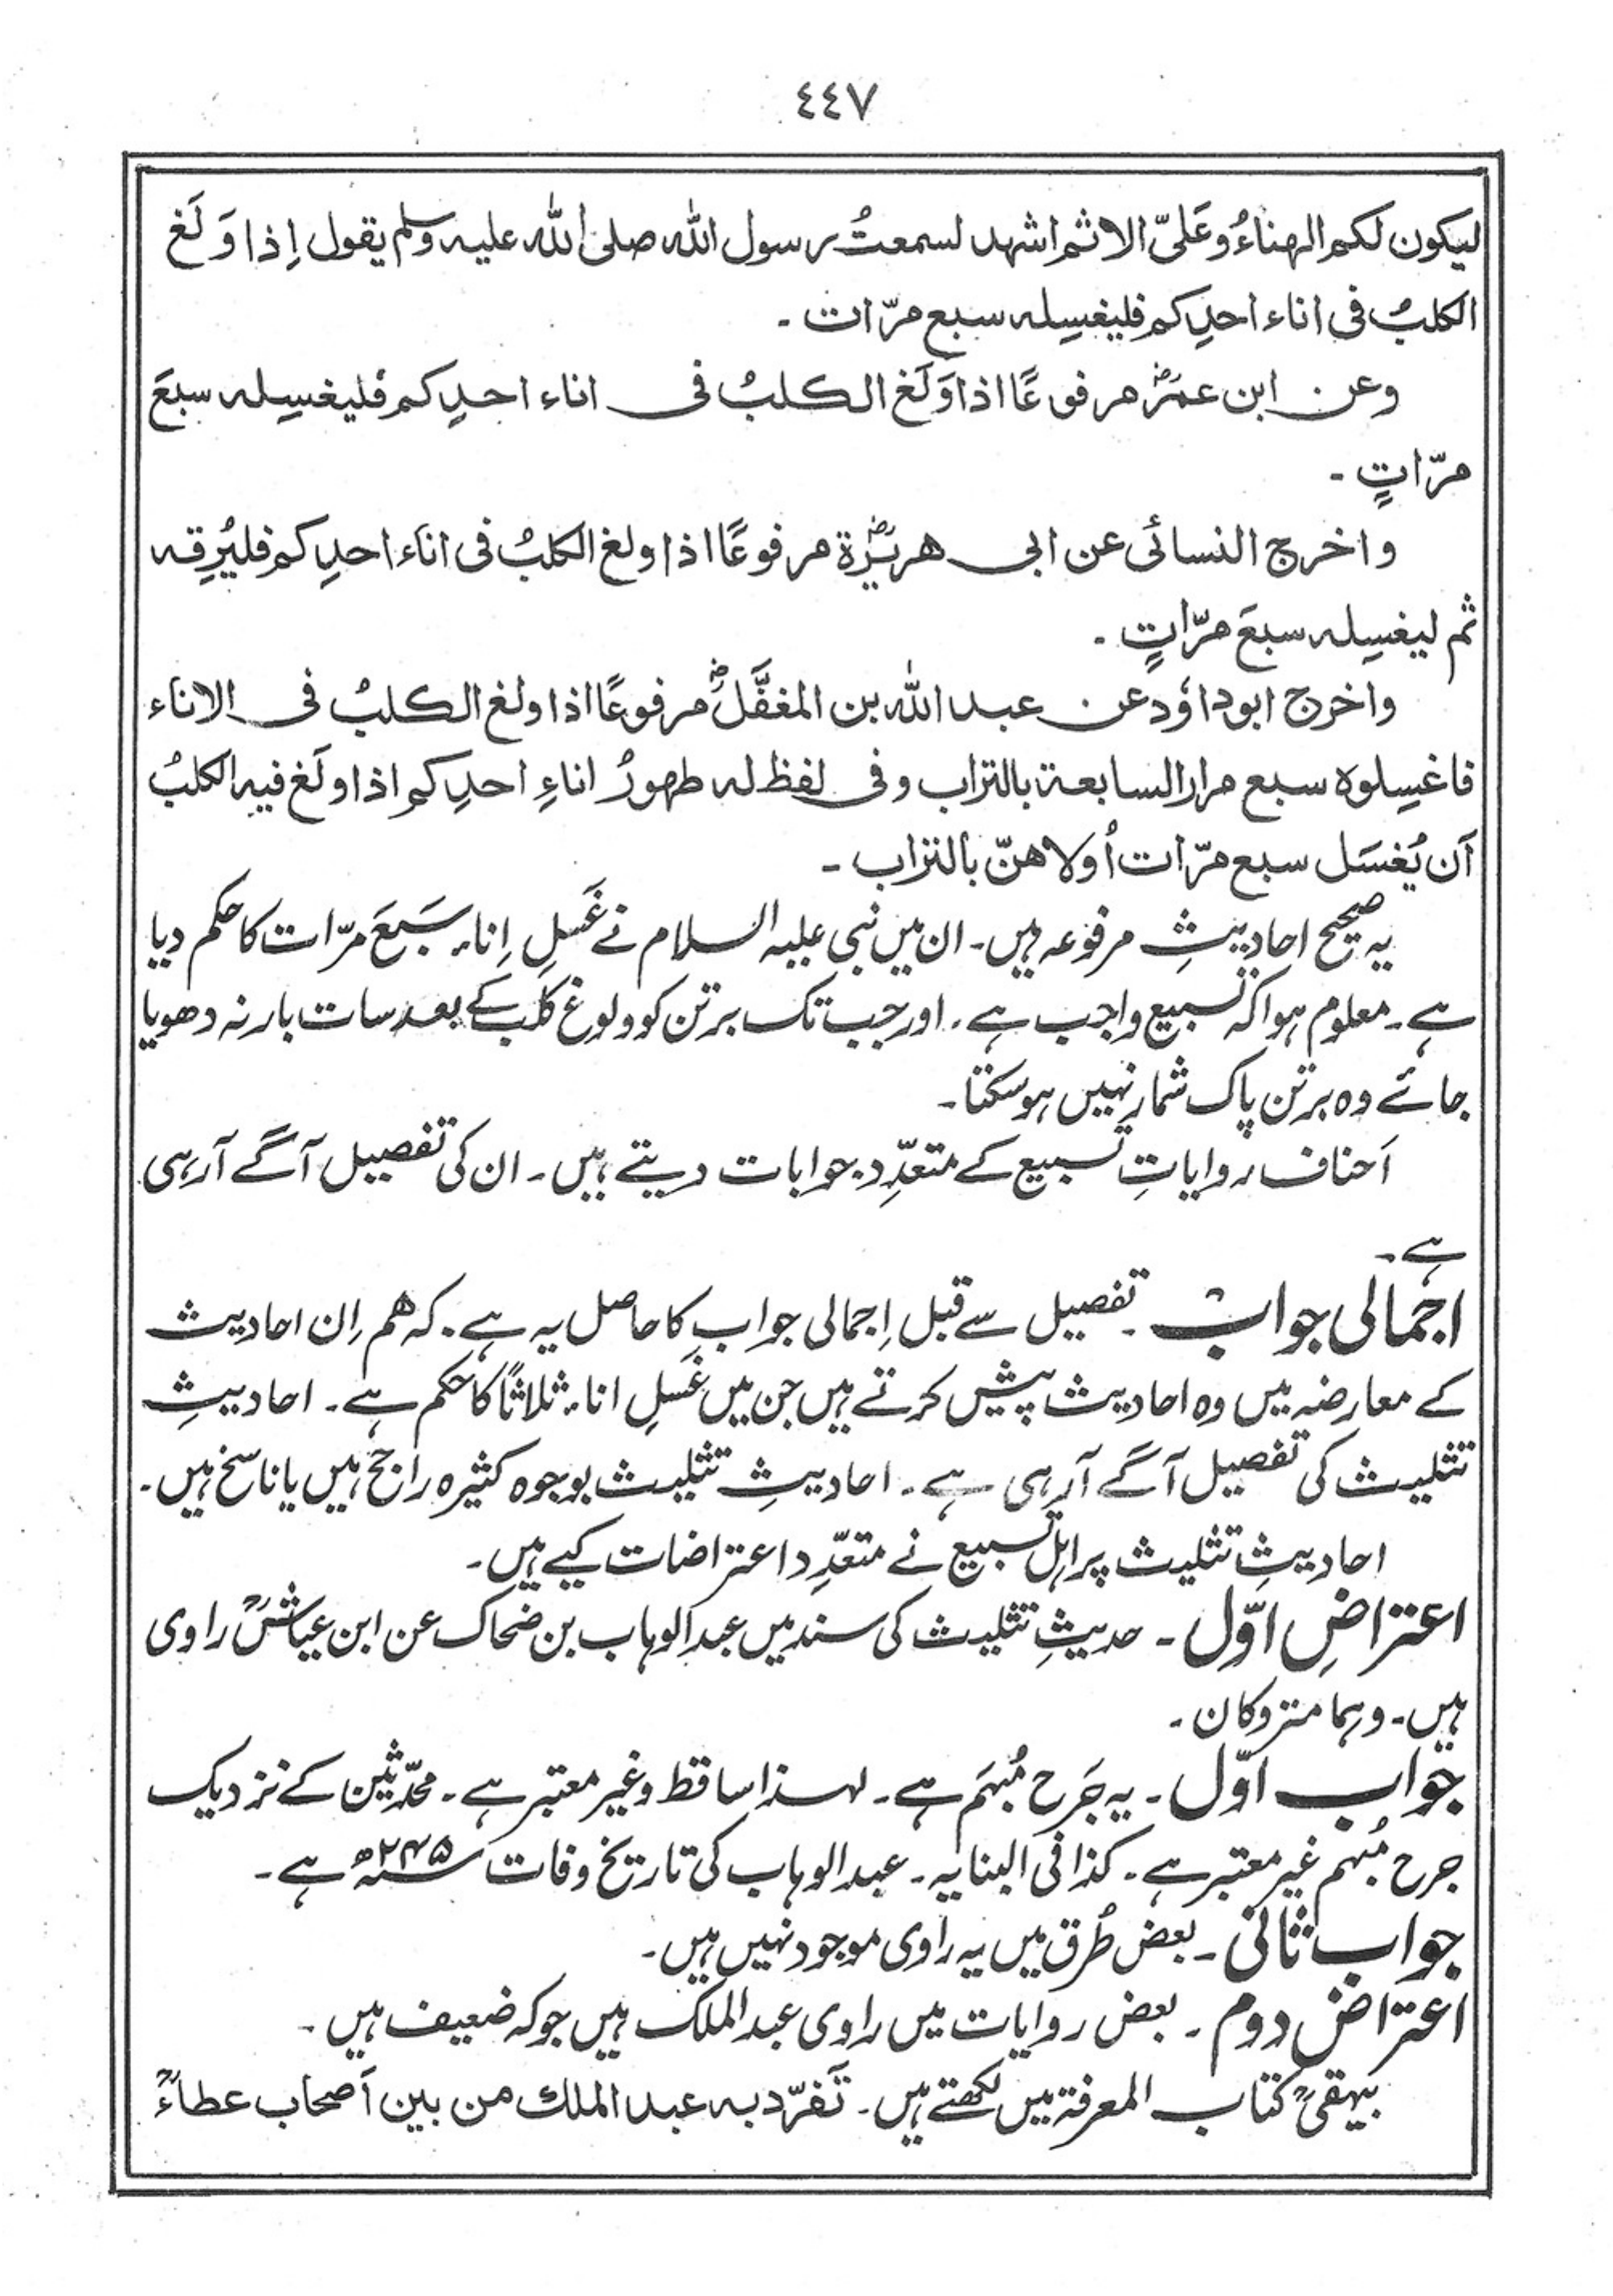 ٤٤٧
ليكون لكم الهناءُ وعَلىّ الاثم اشهد لسمعتُ رسول الله صلى الله عليه وسلم يقول اِذا وَلَغ
الكلبُ فى اناء احدِكم فليغسِله سبع مرّات ۔
وعن ابن عمرؓ مرفوعًا اذا وَلَغ الكلبُ فى اناء احدِكم فليغسِله سبعَ
مرّاتٍ ۔
واخرج النسائى عن ابى هريرةؓ مرفوعًا اذا ولغ الكلبُ فى اناء احدِكم فليُرِقه
ثم ليغسِله سبعَ مرّاتٍ ۔
واخرج ابوداؤد عن عبد الله بن المغفَّلؓ مرفوعًا اذا ولغ الكلبُ فى الاناء
فاغسِلوه سبع مرار السابعة بالتراب وفى لفظ له طهورُ اناءِ احدِكم اذا ولَغ فيه الكلبُ
اَن يُغسَل سبع مرّات اُولاهنّ بالتراب ۔
یہ صحیح احادیثِ مرفوعہ ہیں۔ ان میں نبی علیہ السلام نے غَسلِ اِناء سَبعَ مرّات کا حکم دیا
ہے۔ معلوم ہوا کہ تسبیع واجب ہے۔ اور جب تک برتن کو ولوغ کلب کے بعد سات بار نہ دھویا
جائے وہ برتن پاک شمار نہیں ہوسکتا۔
اَحناف روایاتِ تسبیع کے متعدِّد جوابات دیتے ہیں۔ ان کی تفصیل آگے آرہی
ہے۔
اجمالی جواب ۔ تفصیل سے قبل اِجمالی جواب کا حاصل یہ ہے۔ کہ ھم اِن احادیث
کے معارضہ میں وہ احادیث پیش کرتے ہیں جن میں غَسلِ اناء ثلاثاً کا حکم ہے۔ احادیثِ
تثلیث کی تفصیل آگے آرہی ہے۔ احادیثِ تثلیث بوجوہ کثیرہ راجح ہیں یا ناسخ ہیں۔
احادیثِ تثلیث پر اہلِ تسبیع نے متعدِّد اعتراضات کیے ہیں۔
اعتراضِ اوّل ۔ حدیثِ تثلیث کی سند میں عبدالوہاب بن ضحاک عن ابن عیاشؒ راوی
ہیں۔ وہما متروکان۔
جواب اوّل ۔ یہ جَرح مُبہَم ہے۔ لہٰذا ساقط وغیر معتبر ہے۔ محدّثین کے نزدیک
جرح مُبہم غیر معتبر ہے۔ کذا فی البنایہ۔ عبدالوہاب کی تاریخ وفات سنہ ۲۴۵ھ ہے۔
جواب ثانی ۔ بعض طُرق میں یہ راوی موجود نہیں ہیں۔
اعتراض دوم ۔ بعض روایات میں راوی عبدالملک ہیں جو کہ ضعیف ہیں۔
بیہقیؒ کتاب المعرفۃ میں لکھتے ہیں۔ تَفرّد به عبد الملك من بين اَصحاب عطاءؒ